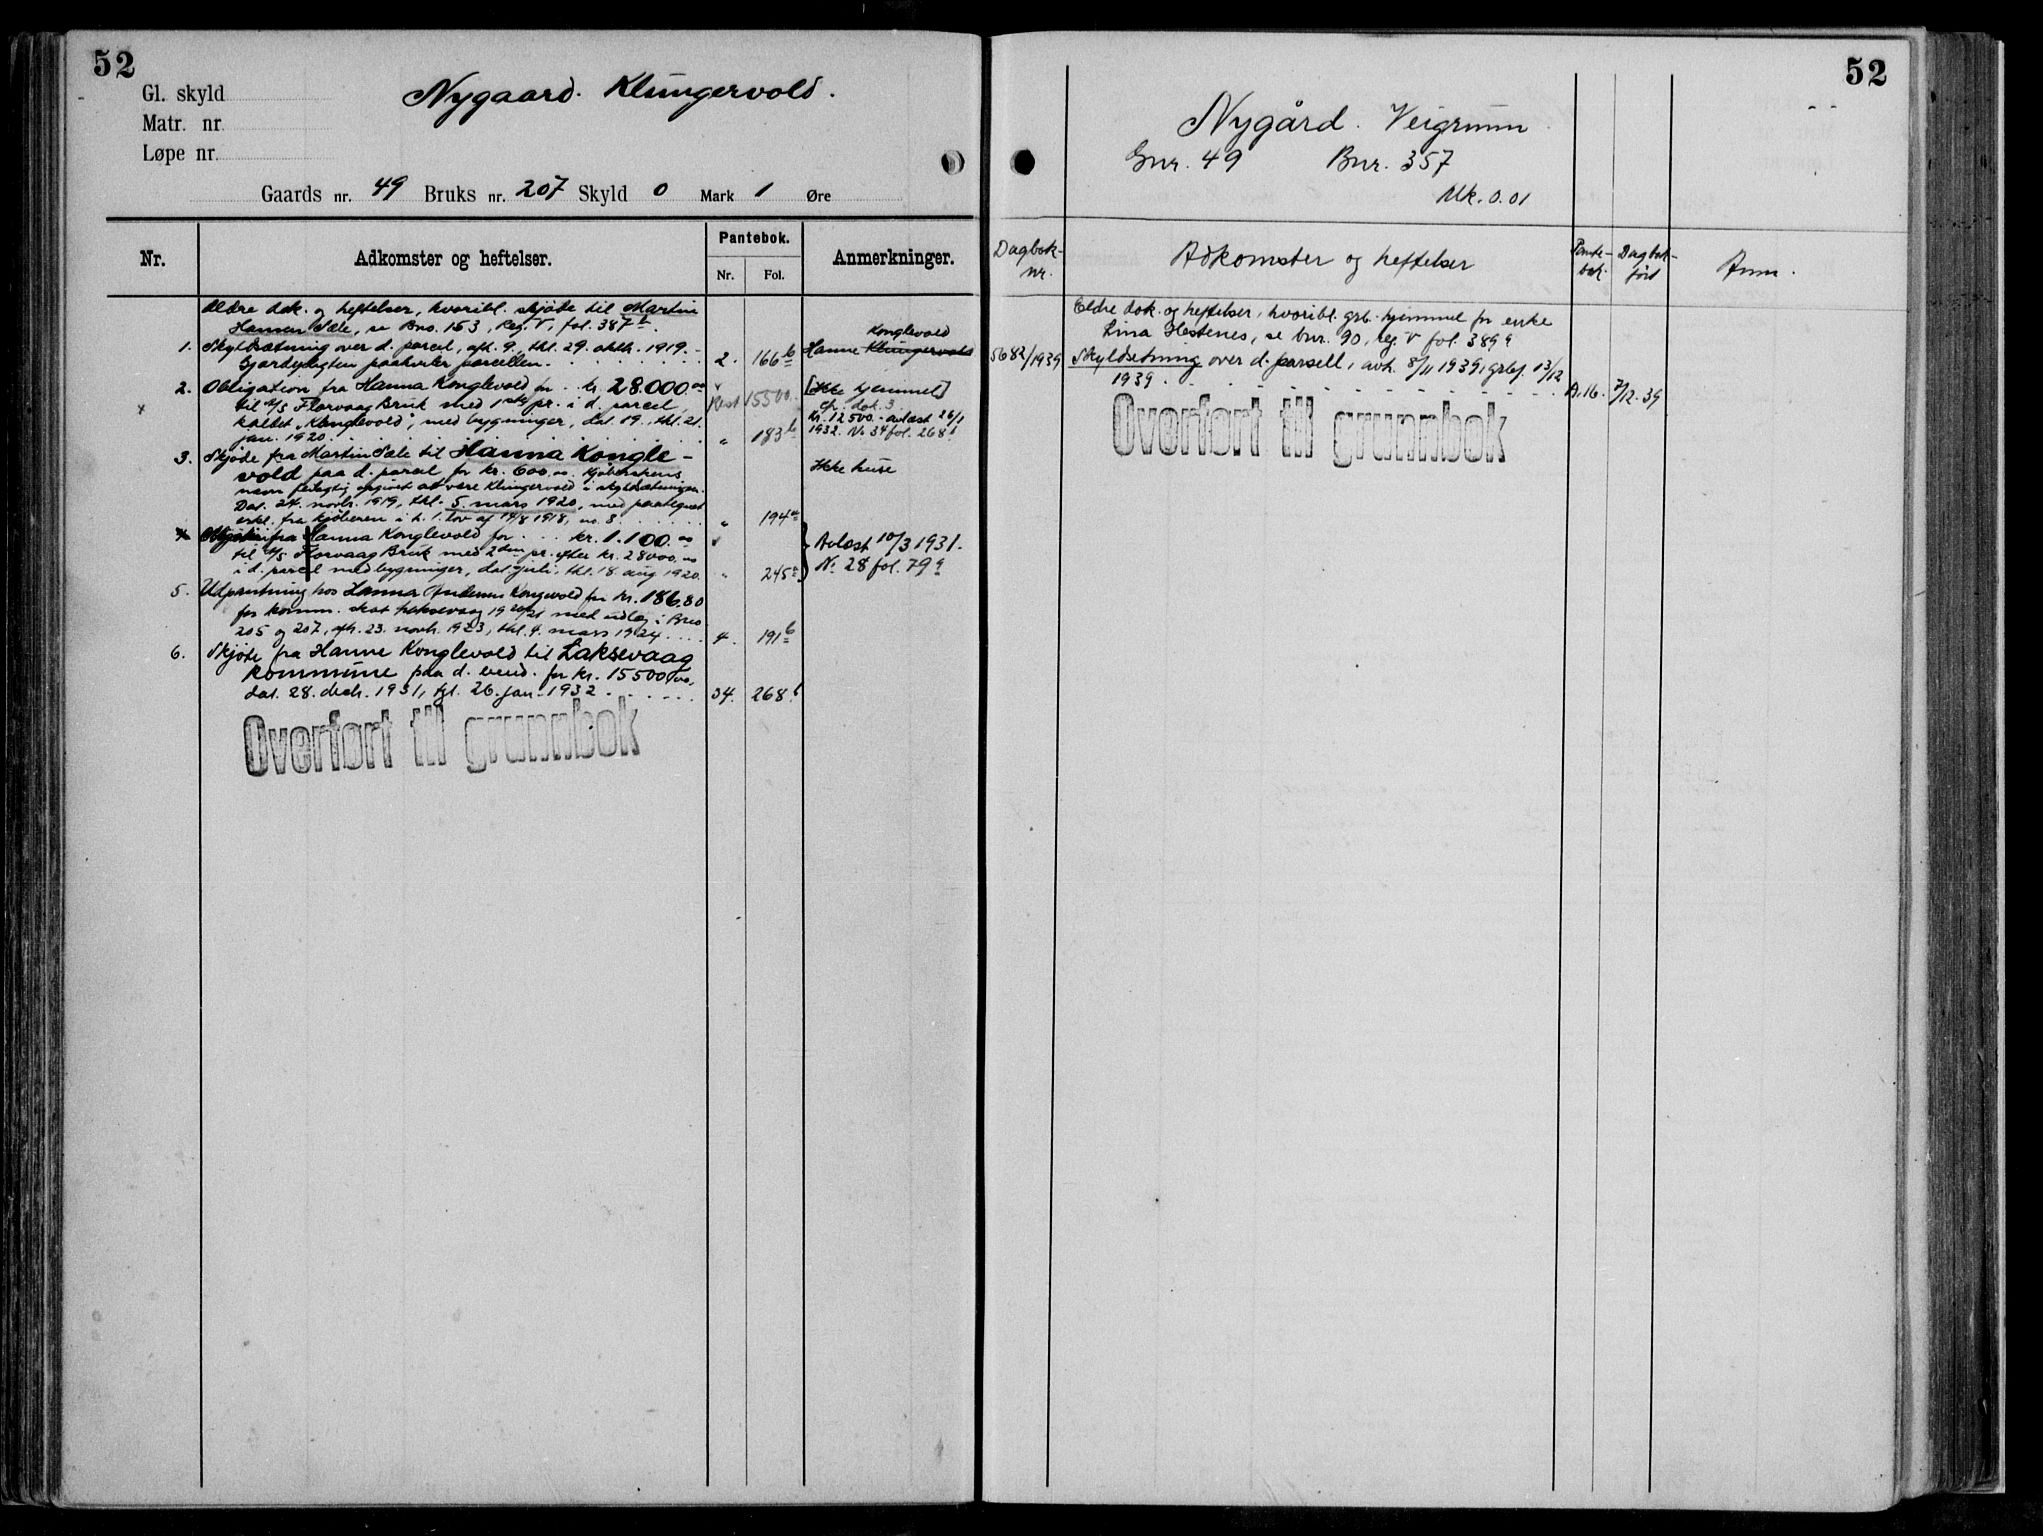 52
Gl. skyld
Matr. nr.
Løpe nr.
Nygaard. Klungervold.
Gaards nr. 49 Bruks nr. 207 Skyld 0 Mark 1 Øre
Nr.
Adkomster og heftelser.
Pantebok.
Nr. Fol.
Anmerkninger.
Ældre dok. og heftelser, hvoribl. skjöde til Martin
Hansen Sæle, se Bno. 153, Reg. V, fol. 387 b.
1. Skyldsætning over d. parcel, afh. 9., thl. 29. oktb. 1919.
Gjærdepligten paahviler parcellen. 2. 166 b
Konglevold
Hanne Klungervold
2. Obligation fra Hanna Konglevold for kr. 28.000.00
til A/S Florvaag Bruk med 1ste pr. i d. parcel,
kaldet "Klunglevold", med bygninger, dat. 19., thl. 21.
jan. 1920 " 183 b
Rest 15500.
[Ikke hjemmel]
cfr. dok. 3
Kr. 12500.- avlæst 26/1
1932. No 34 fol. 268 b
3. Skjöde fra Martin Sæle til Hanna Kongle-
vold paa d. parcel for kr. 600.00. Kjöberskens
navn feilagtig opgivet at være Klungervold i skyldsætningen.
Dat. 24. novbr. 1919, thl. 5. mars 1920, med paategnet
erkl. fra kjöberen i h. t. lov af 14/8 1918, no. 3 " 194 a
Ikke huse
4. Obligation fra Hanna Konglevold for kr. 1.100.00
til A/S Florvaag Bruk med 2den pr. efter kr. 28000.00
i d. parcel med bygninger, dat. juli, thl. 18. aug. 1920. " 245 a
Avlæst 10/3 1931.
No. 28 fol. 79 a
5. Udpantning hos Hanna Konglevold for kr. 186.80
for komm. skat Laksevaag 1920/21 med udlæg i Bno
205 og 207, afh. 23. novb. 1923, thl. 4. mars 1924 4. 191 b
6. Skjöte fra Hanne Konglevold til Laksevaag
kommune paa d. eiend. for kr. 15500.00,
dat. 28. decb. 1931, tgl. 26. jan. 1932 34. 268 b
Overført til grunnbok
52
Nygård. Veigrunn
Gnr. 49 Bnr. 357
Mk. 0.01
Dagbok-
nr.
Adkomster og heftelser
Pante-
bok.
Dagbok-
ført
Anm.
Eldre dok. og heftelser, hvoribl. grb. hjemmel for enke
Lina Hestenes, se bnr. 90, reg. V fol. 389 a
5682/1939 Skyldsetning over d. parsell, avh. 8/11 1939, grbf. 13/12
1939. A. 16. 7/12. 39
Overført til grunnbok